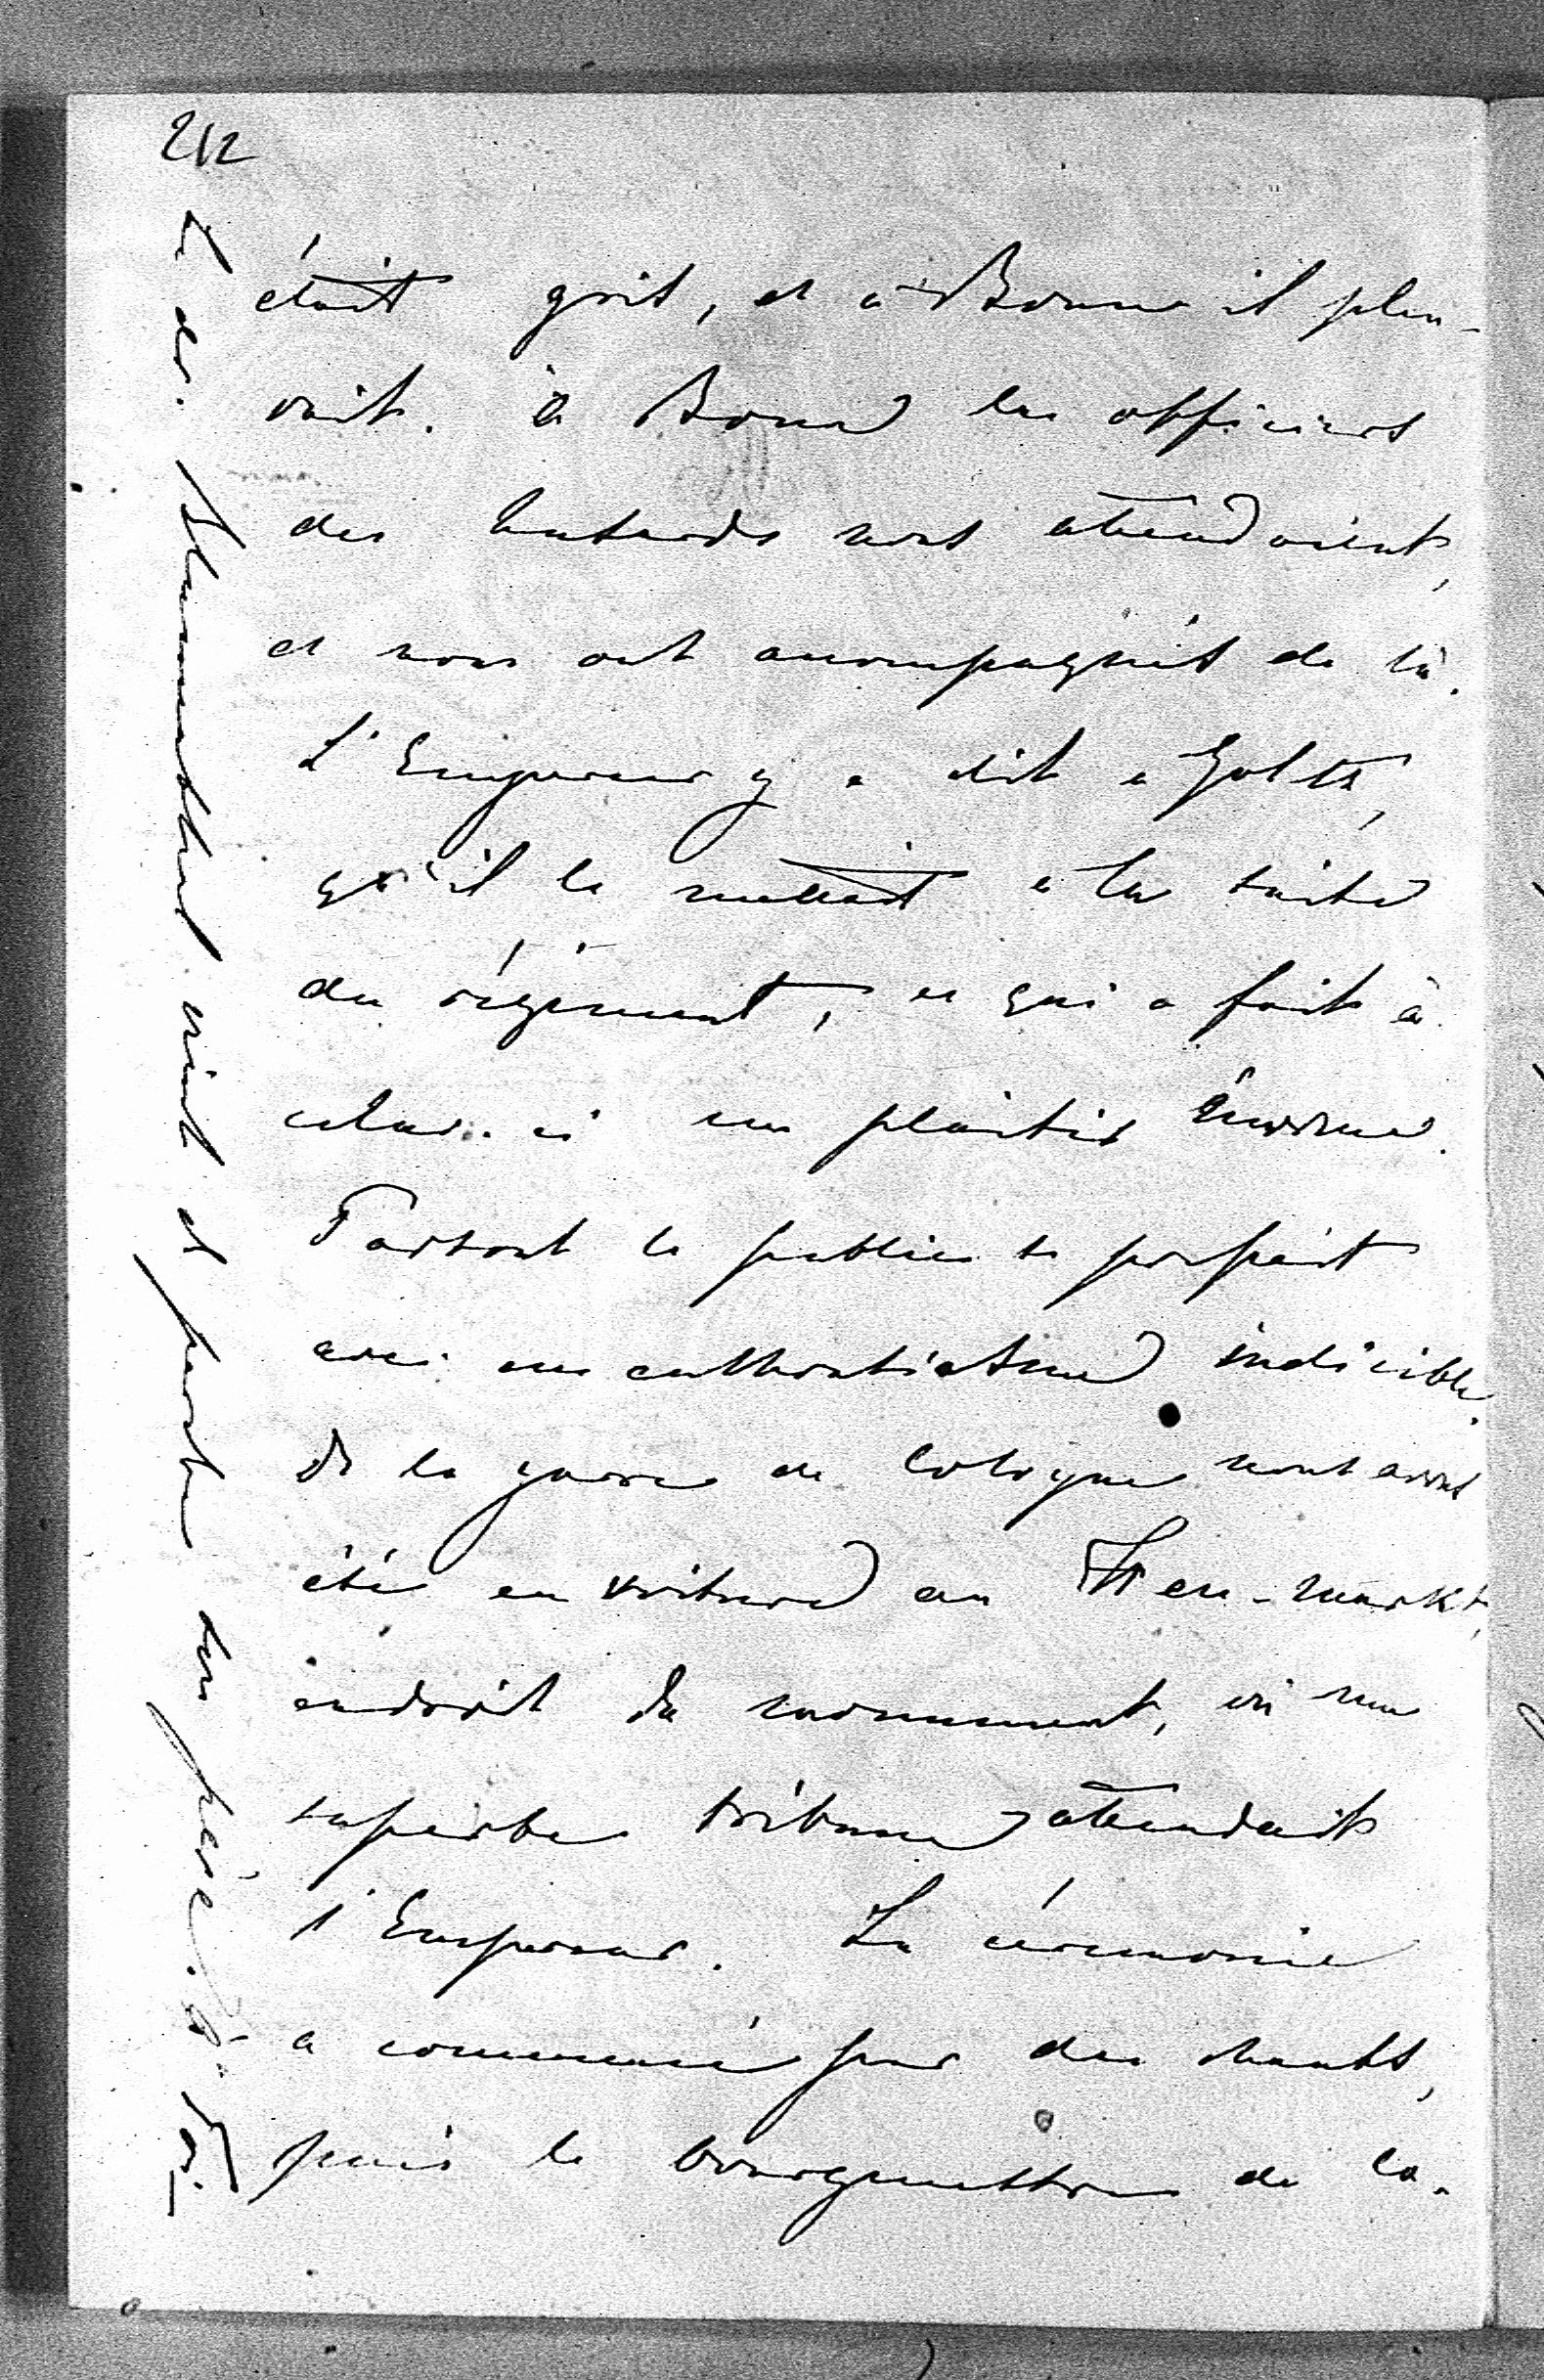 212
était gris, et à Bonne il pleu-
vait. à Bonn les officiers
des husards nous attendaient,
et nous ont accompagnés de là.
L'Empereur y a dit à Goltz,
qu'il le mettait à la suite
du régiment, ce qui a fait à
celui-ci un plaisir énorme.
Partout le public se pressait
avec un enthousiasme indicible.
De la gare de Cologne nous avons
été en voiture au Heu-markt,
endroit du monument, où une
superbe tribune attendait
l'Empereur. La cérémonie
a commencé par des chants,
puis le bourgmestre de Co-
vint et parla